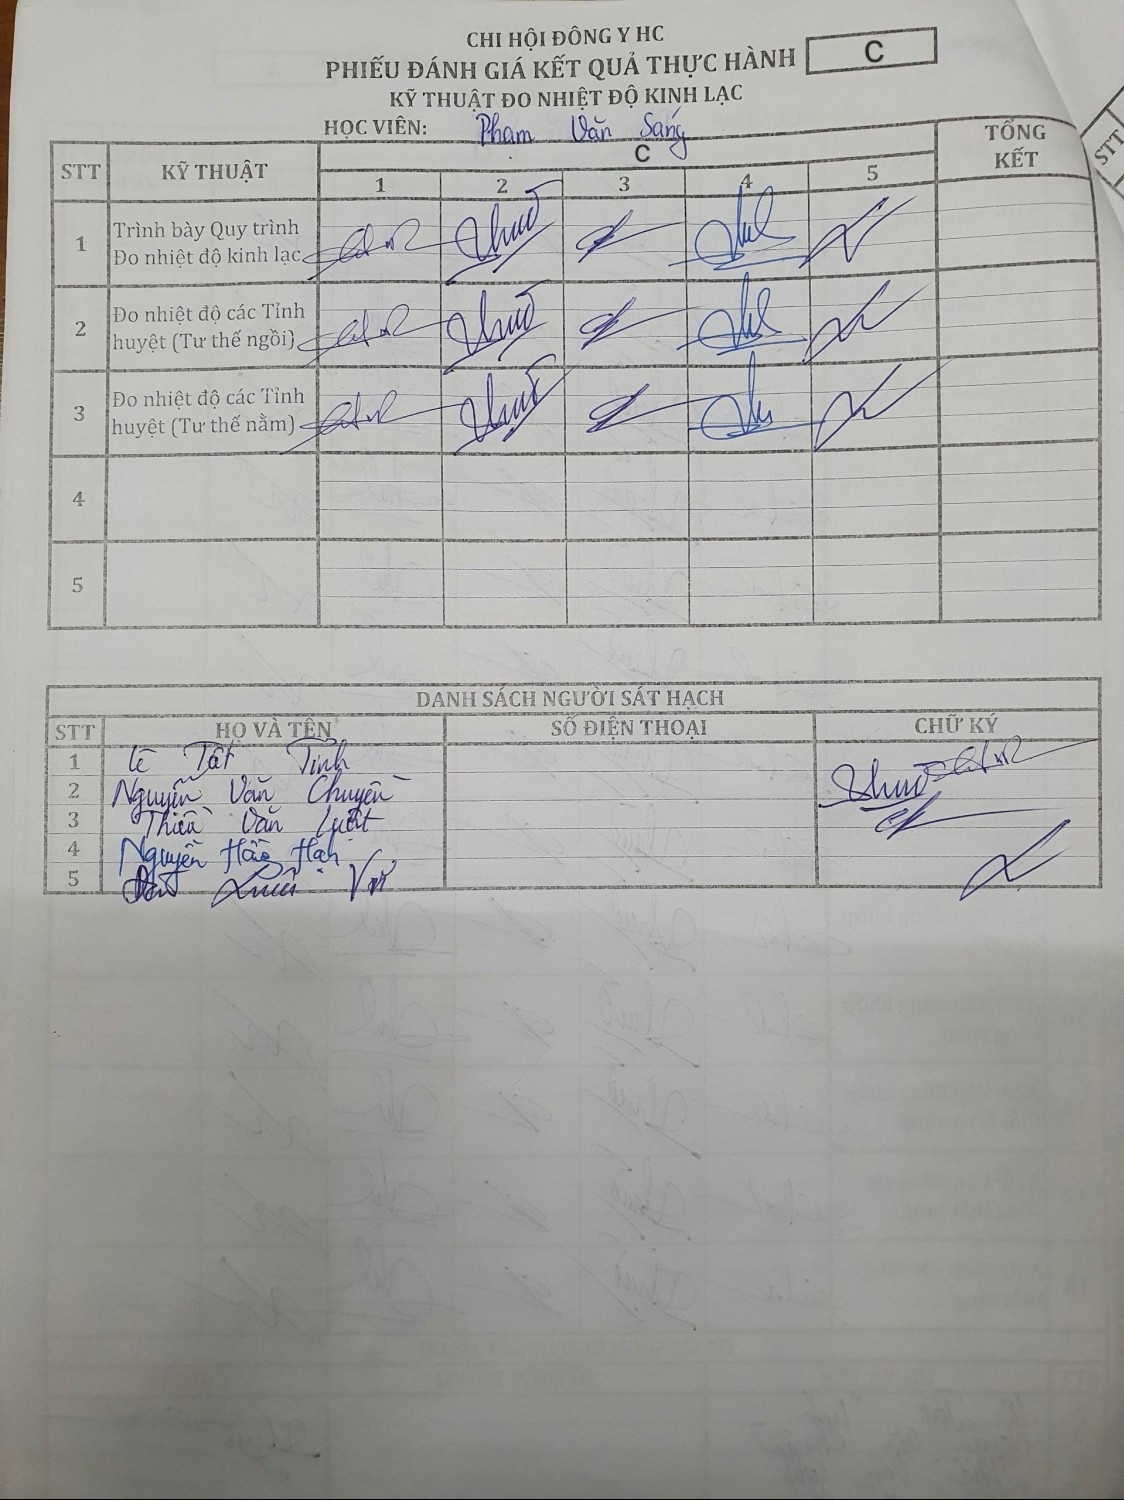 CHI HỘI ĐÔNG Y HC
PHIẾU ĐÁNH GIÁ KẾT QUẢ THỰC HÀNH
C
KỸ THUẬT ĐO NHIỆT ĐỘ KINH LẠC
HỌC VIÊN: Phạm Văn Sang
STT
KỸ THUẬT
C
TỔNG
KẾT
STT
1 2 3 4 5
1
Trình bày Quy trình
Đo nhiệt độ kinh lạc
2
Đo nhiệt độ các Tỉnh
huyệt (Tư thế ngồi)
3
Đo nhiệt độ các Tỉnh
huyệt (Tư thế nằm)
4
5
DANH SÁCH NGƯỜI SÁT HẠCH
STT HỌ VÀ TÊN SỐ ĐIỆN THOẠI CHỮ KÝ
1 Lê Tất Tĩnh
2 Nguyễn Văn Chuyền
3 Thiều Văn Luật
4 Nguyễn Hạnh
5